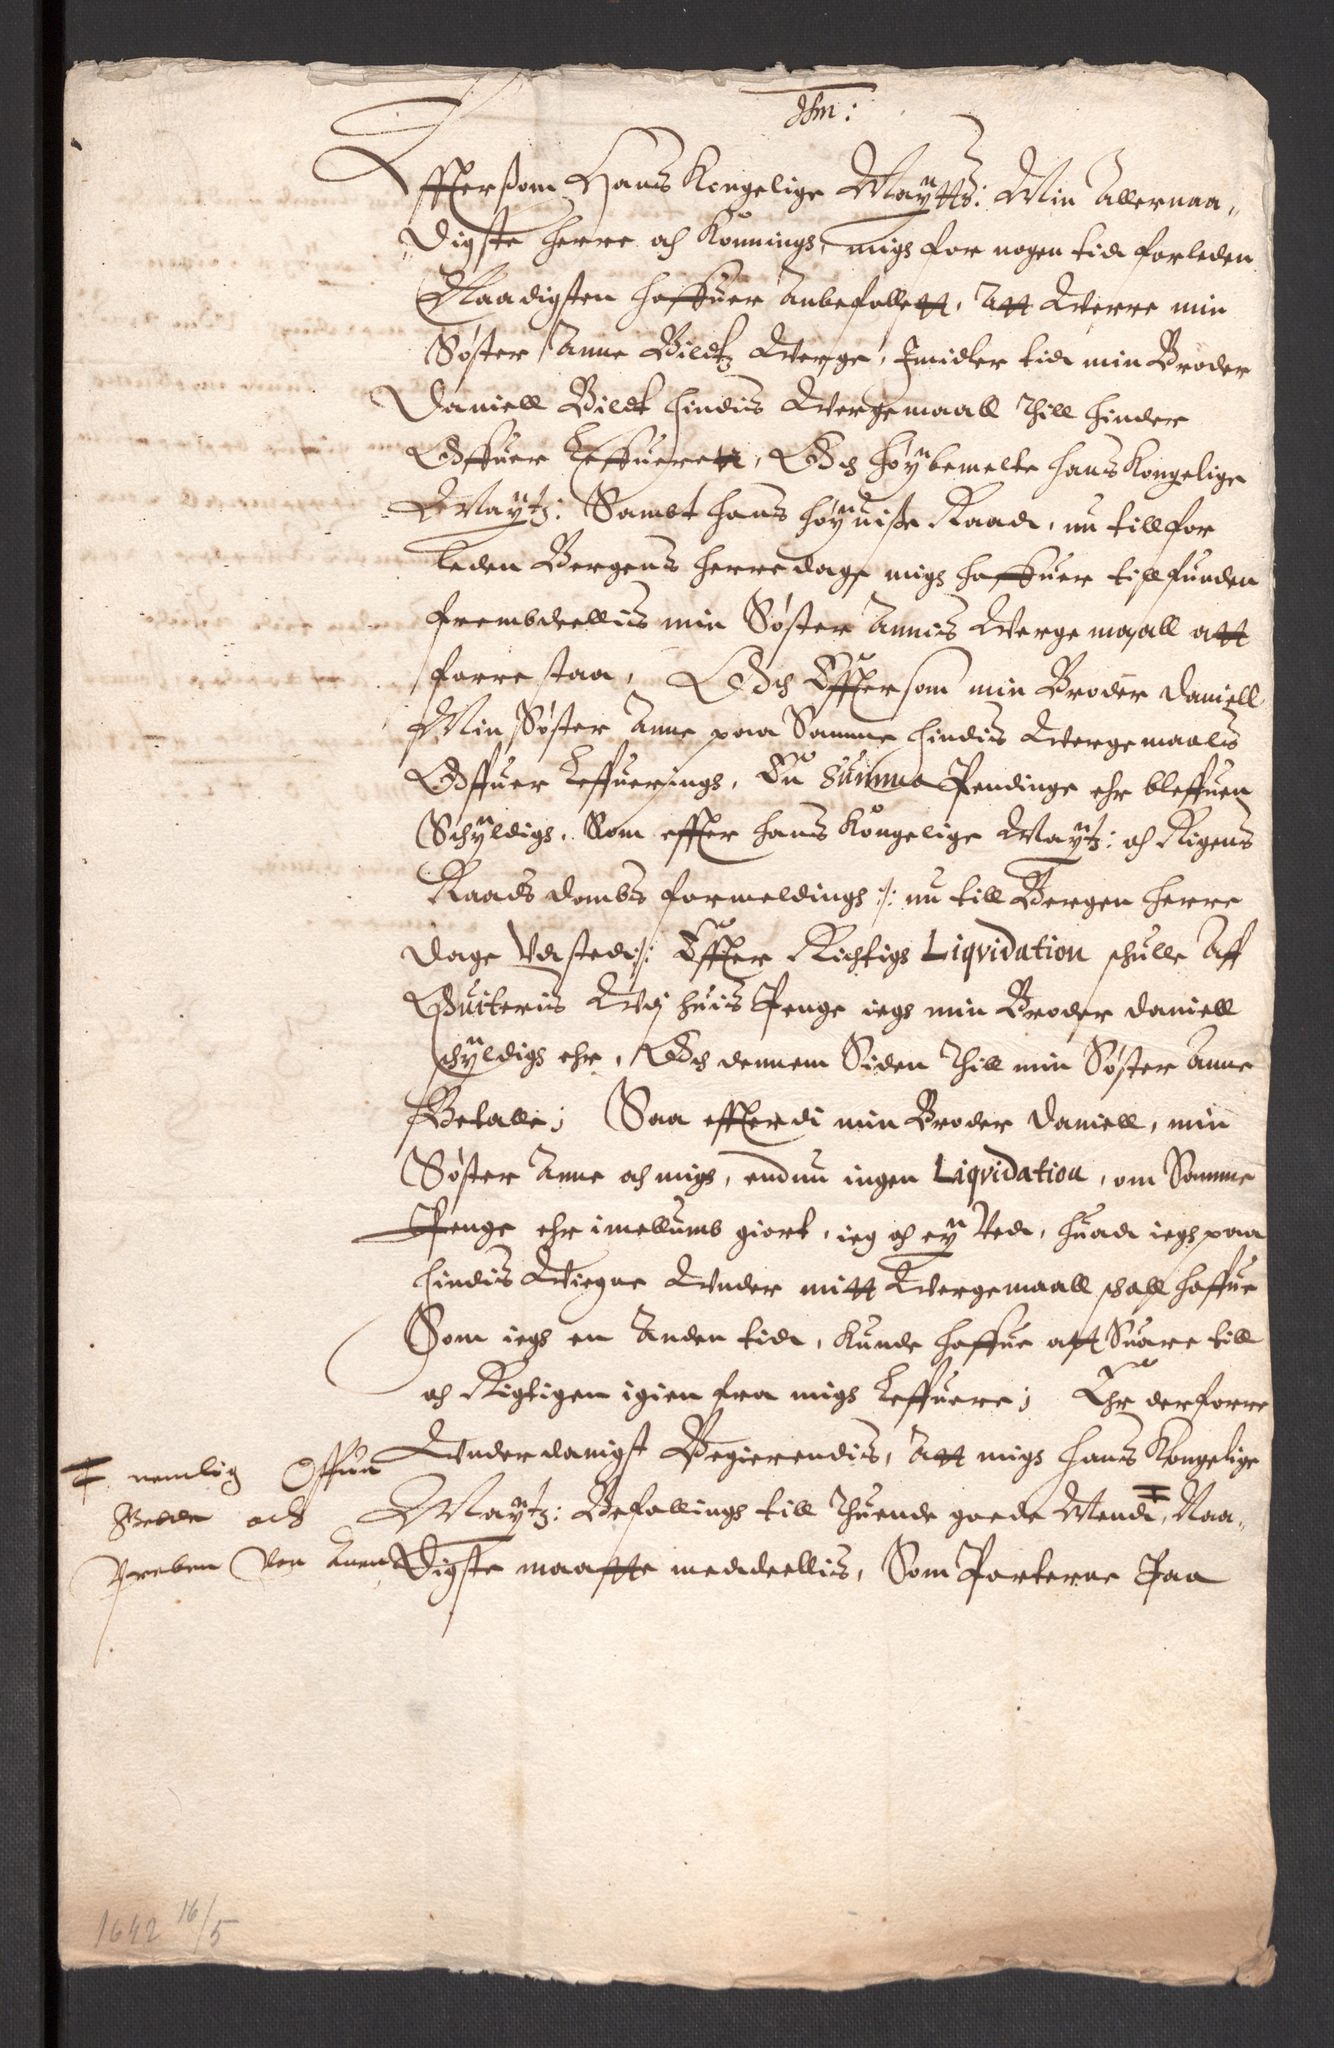 Efftersom Hans Kongelige Maÿtts: Min Allernaa„
„digste herre och Konning, mig for nogen tid forleden
Naadigsten haffuer Anbefallett, Att Werre min
Søster Anne Bildtz Werge, Imidler tid min Broder
Daniell Bildt hindis Wergemaall thill hinder
Offuer leffuerett, Och høÿbemelte hans Kongelige
Maÿtz: Sambt hans høÿuise Raad, nu till for
leden Bergens herredage mig haffuer tillfunden
frembdeellis min Søster Annis Wergemaall att
forrestaa, Och Efftersom min Broder Daniell
Min Søster Anne paa Samme hindis Wergemaals
Offuer leffuering, En Summa Pendinge ehr bleffuen
Schÿldig, Som effter hans Kongelige Maÿtz: och Rigens
Raads dombs formelding :/: nu till Bergen herre
dage Vdsted :/: Effter Richtig Liqvidation schulle Aff
Quiteris Wdj huis Penge ieg min Broder Daniell
schÿldig ehr, Och dennem Siden thill min Søster Anne
Betalle; Saa effterdi min Broder Daniell, min
Søster Anne och mig, endnu ingen Liqvidation, om Samme
Penge ehr imellumb giort, ieg och eÿ Ved, huad ieg paa
hindis Wiegne Wnder mitt Wergemaall schall haffue
Som ieg en Anden tid, kunde haffue att Suare till
och Rigtigen igien fra mig leffuere; Ehr derforre
Wnderdanigst Begierendis, Att mig hans Kongelige
Maÿtz: Befalling till thuende goede Mend, Naa„
digste maatte meddeellis, Som Parterne Paa
nemlig Offue
Bielde och
Preben Von Anen
1642 16/5